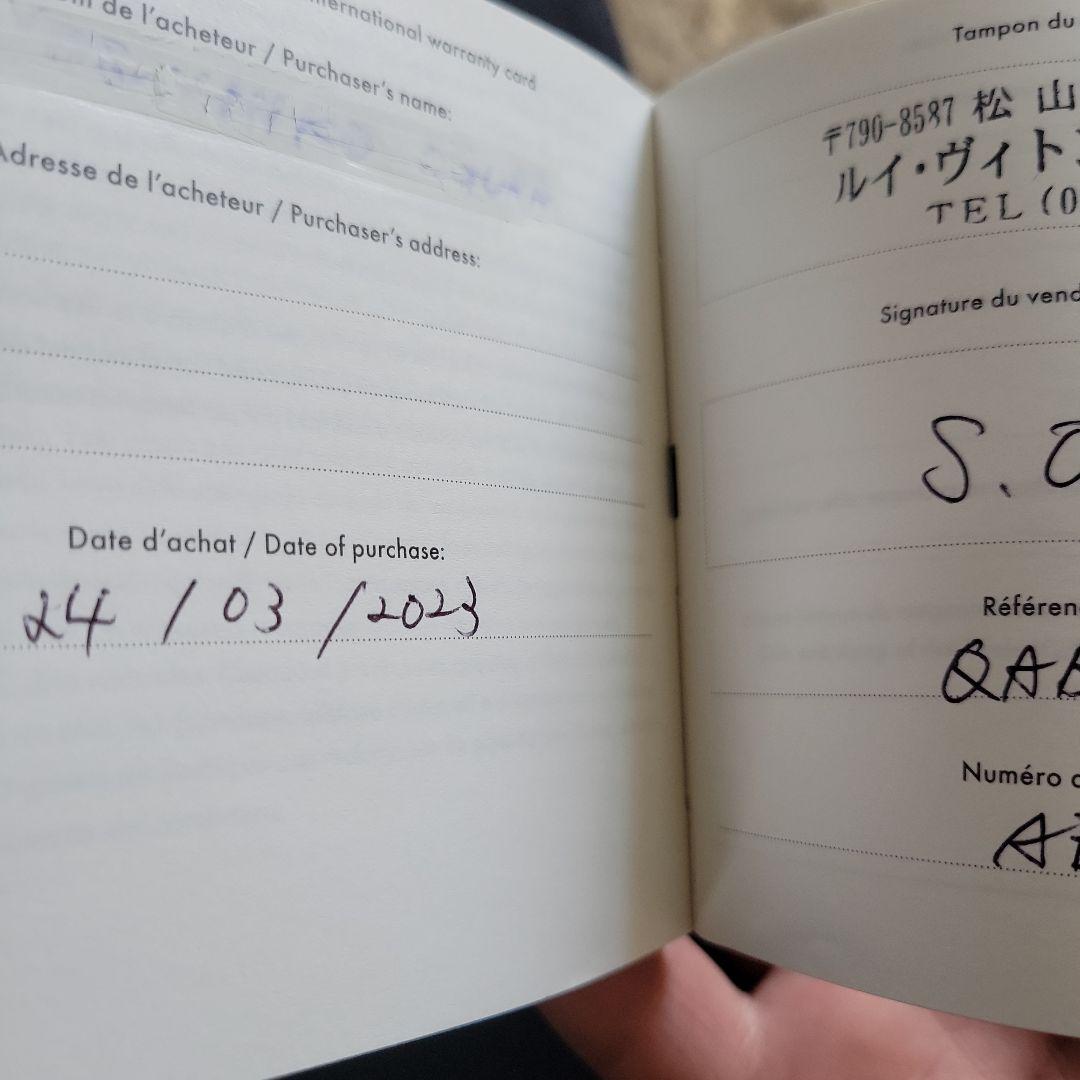 ternational warranty card
de l'acheteur / Purchaser's name:
Adresse de l'acheteur / Purchaser's address:
Date d'achat / Date of purchase:
24 / 03 / 2023
Tampon du
〒790-8587 松 山
ルイ・ヴィト
TEL (0
Signature du vend
S.
Référen
QA
Numéro
A